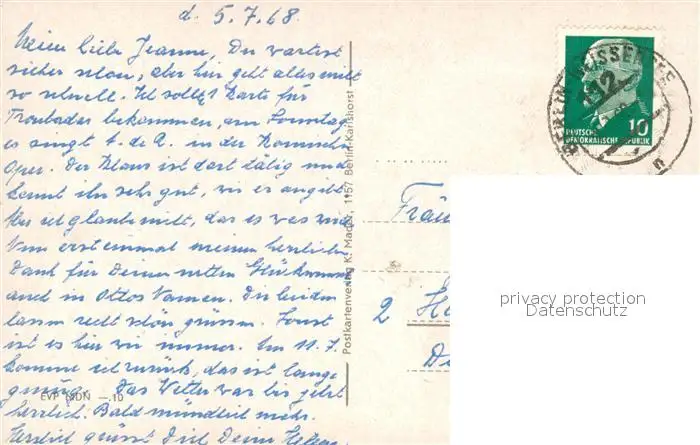 d. 5.7.68
Meine liebe Jeanne, Du wartest
sicher schon, aber hier geht alles nicht
so schnell. Ich sollte 1 Karte für
Troubadur bekommen, am Sonntag
es singt t. de R. in der Komischen
Oper. Der Klaus ist dort tätig und
kennt ihn sehr gut, wie er angibt
ich glaub nicht, das es was wird
Nun erst einmal meinen herzlichen
Dank für Deinen netten Glückwunsch
auch in Ottos Namen. Die beiden
lassen recht schön grüssen. Sonst
ist es hier wie immer. Am 11.7.
komme ich zurück, das ist lange
genug. Das Wetter war bis jetzt
herrlich. Bald mündlich mehr.
Herzlich grüsst Dich Deine
EVP MDN —.10
Postkartenverlag K. Mader, 1157 Berlin-Karlshorst
DEUTSCHE
DEMOKRATISCHE REPUBLIK
10
BERLIN WEISSENSEE
12
Fräu
2
privacy protection
Datenschutz